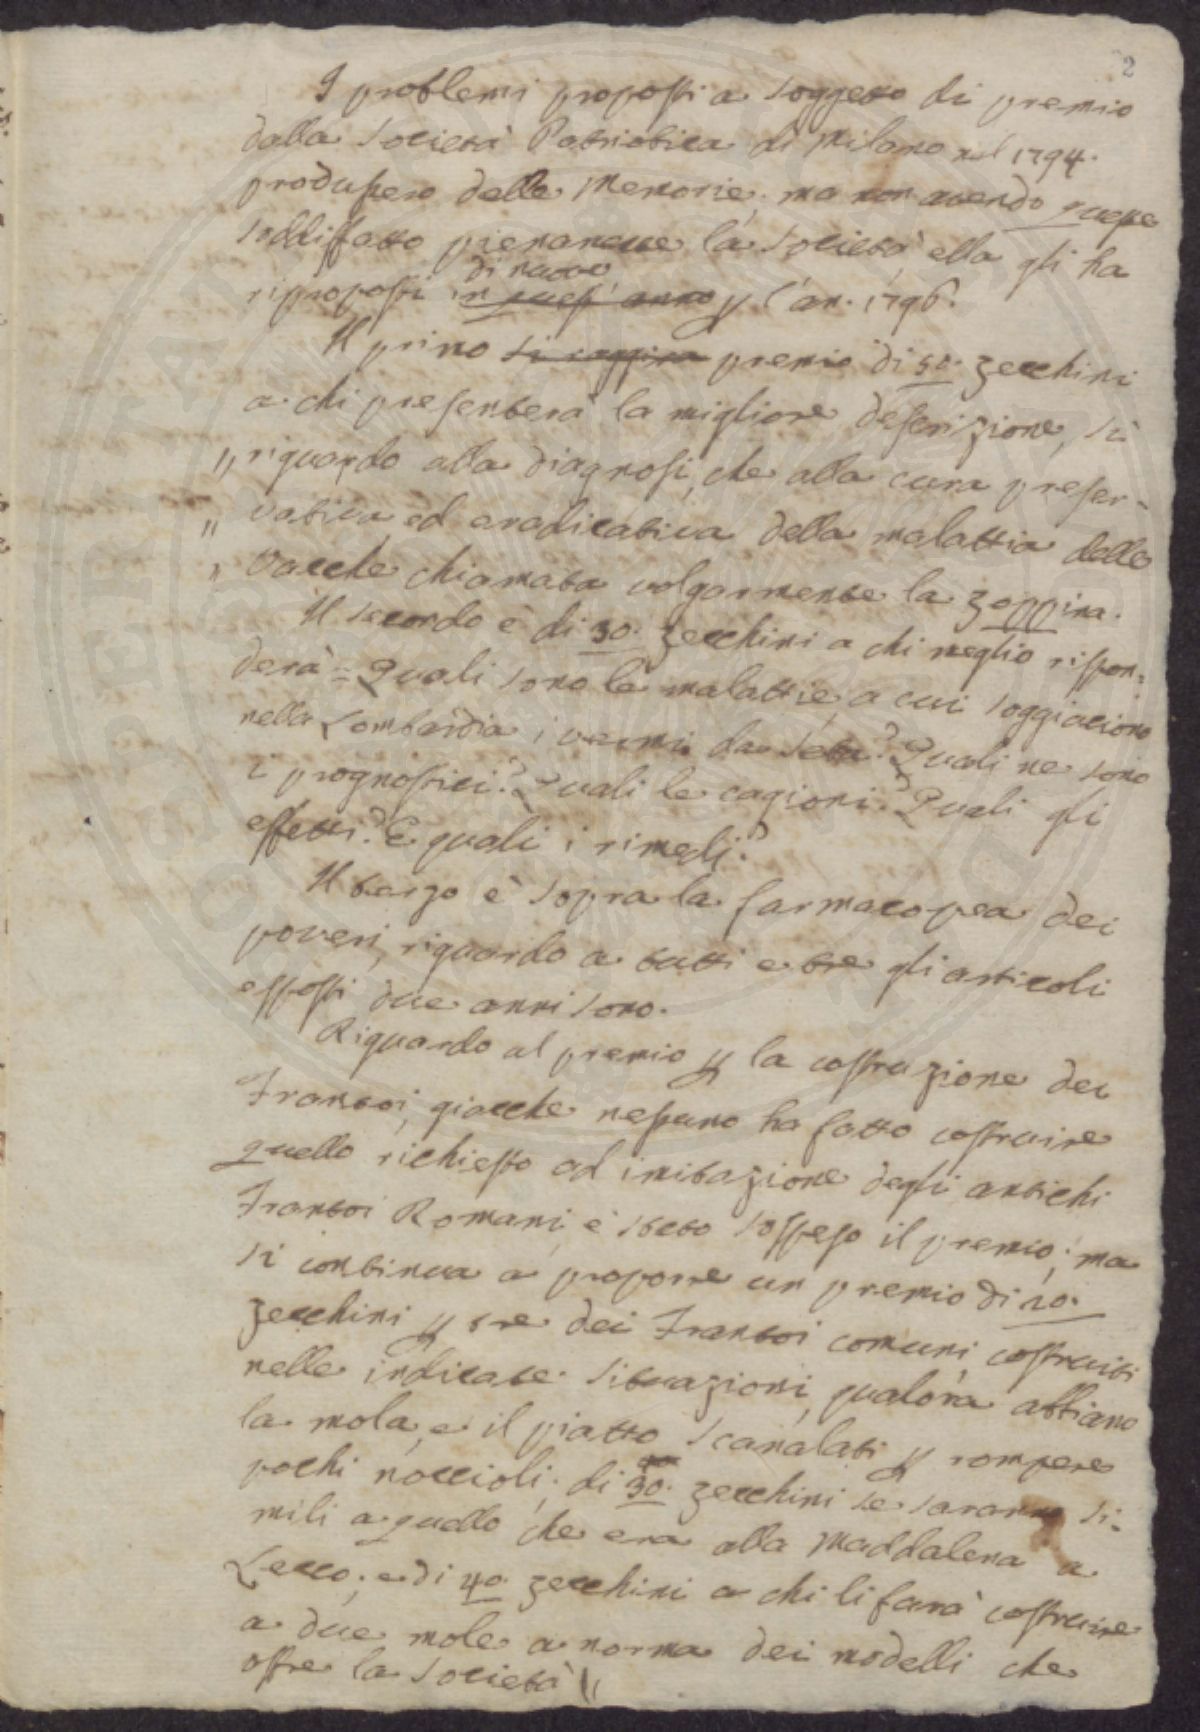 2
I problemi proposti a soggetto di premio
dalla Società Patriotica di Milano nel 1794.
produssero delle Memorie; ma non avendo queste
soddisfatto pienamente la Società ella gli ha
di nuovo
riproposti in quest' anno p l'an. 1796.
Il primo si aggira premio di 50. zecchini
a chi presenterà la migliore descrizione, sì
„ riguardo alla diagnosi, che alla cura preser-
„ vativa ed eradicativa della malattia delle
„ Vacche chiamata volgarmente la zoppina.
Il secondo è di 30. zecchini a chi meglio rispon=
derà = Quali sono le malattie a cui soggiaciono
nella Lombardia i vermi da seta? Quali ne sono
i prognostici? Quali le cagioni? Quali gli
effetti? E quali i rimedj?
Il terzo è sopra la farmacopea dei
poveri, riguardo a tutti e tre gli articoli
esposti due anni sono.
Riguardo al premio p la costruzione dei
Frantoi, giacche nessuno ha fatto costruire
quello richiesto ad imitazione degli antichi
Frantoi Romani, è stato sospeso il premio; ma
si continua a proporre un premio di 20.
zecchini p tre dei Frantoi comuni costruiti
nelle indicate situazioni, qualora abbiano
la mola, e il piatto scanalati p rompere
pochi noccioli; di 30. zecchini se saranno si-
mili a quello che era alla Maddalena a
Lecco; e di 40. zecchini a chi li farà costruire
a due mole a norma dei modelli che
offre la Società //